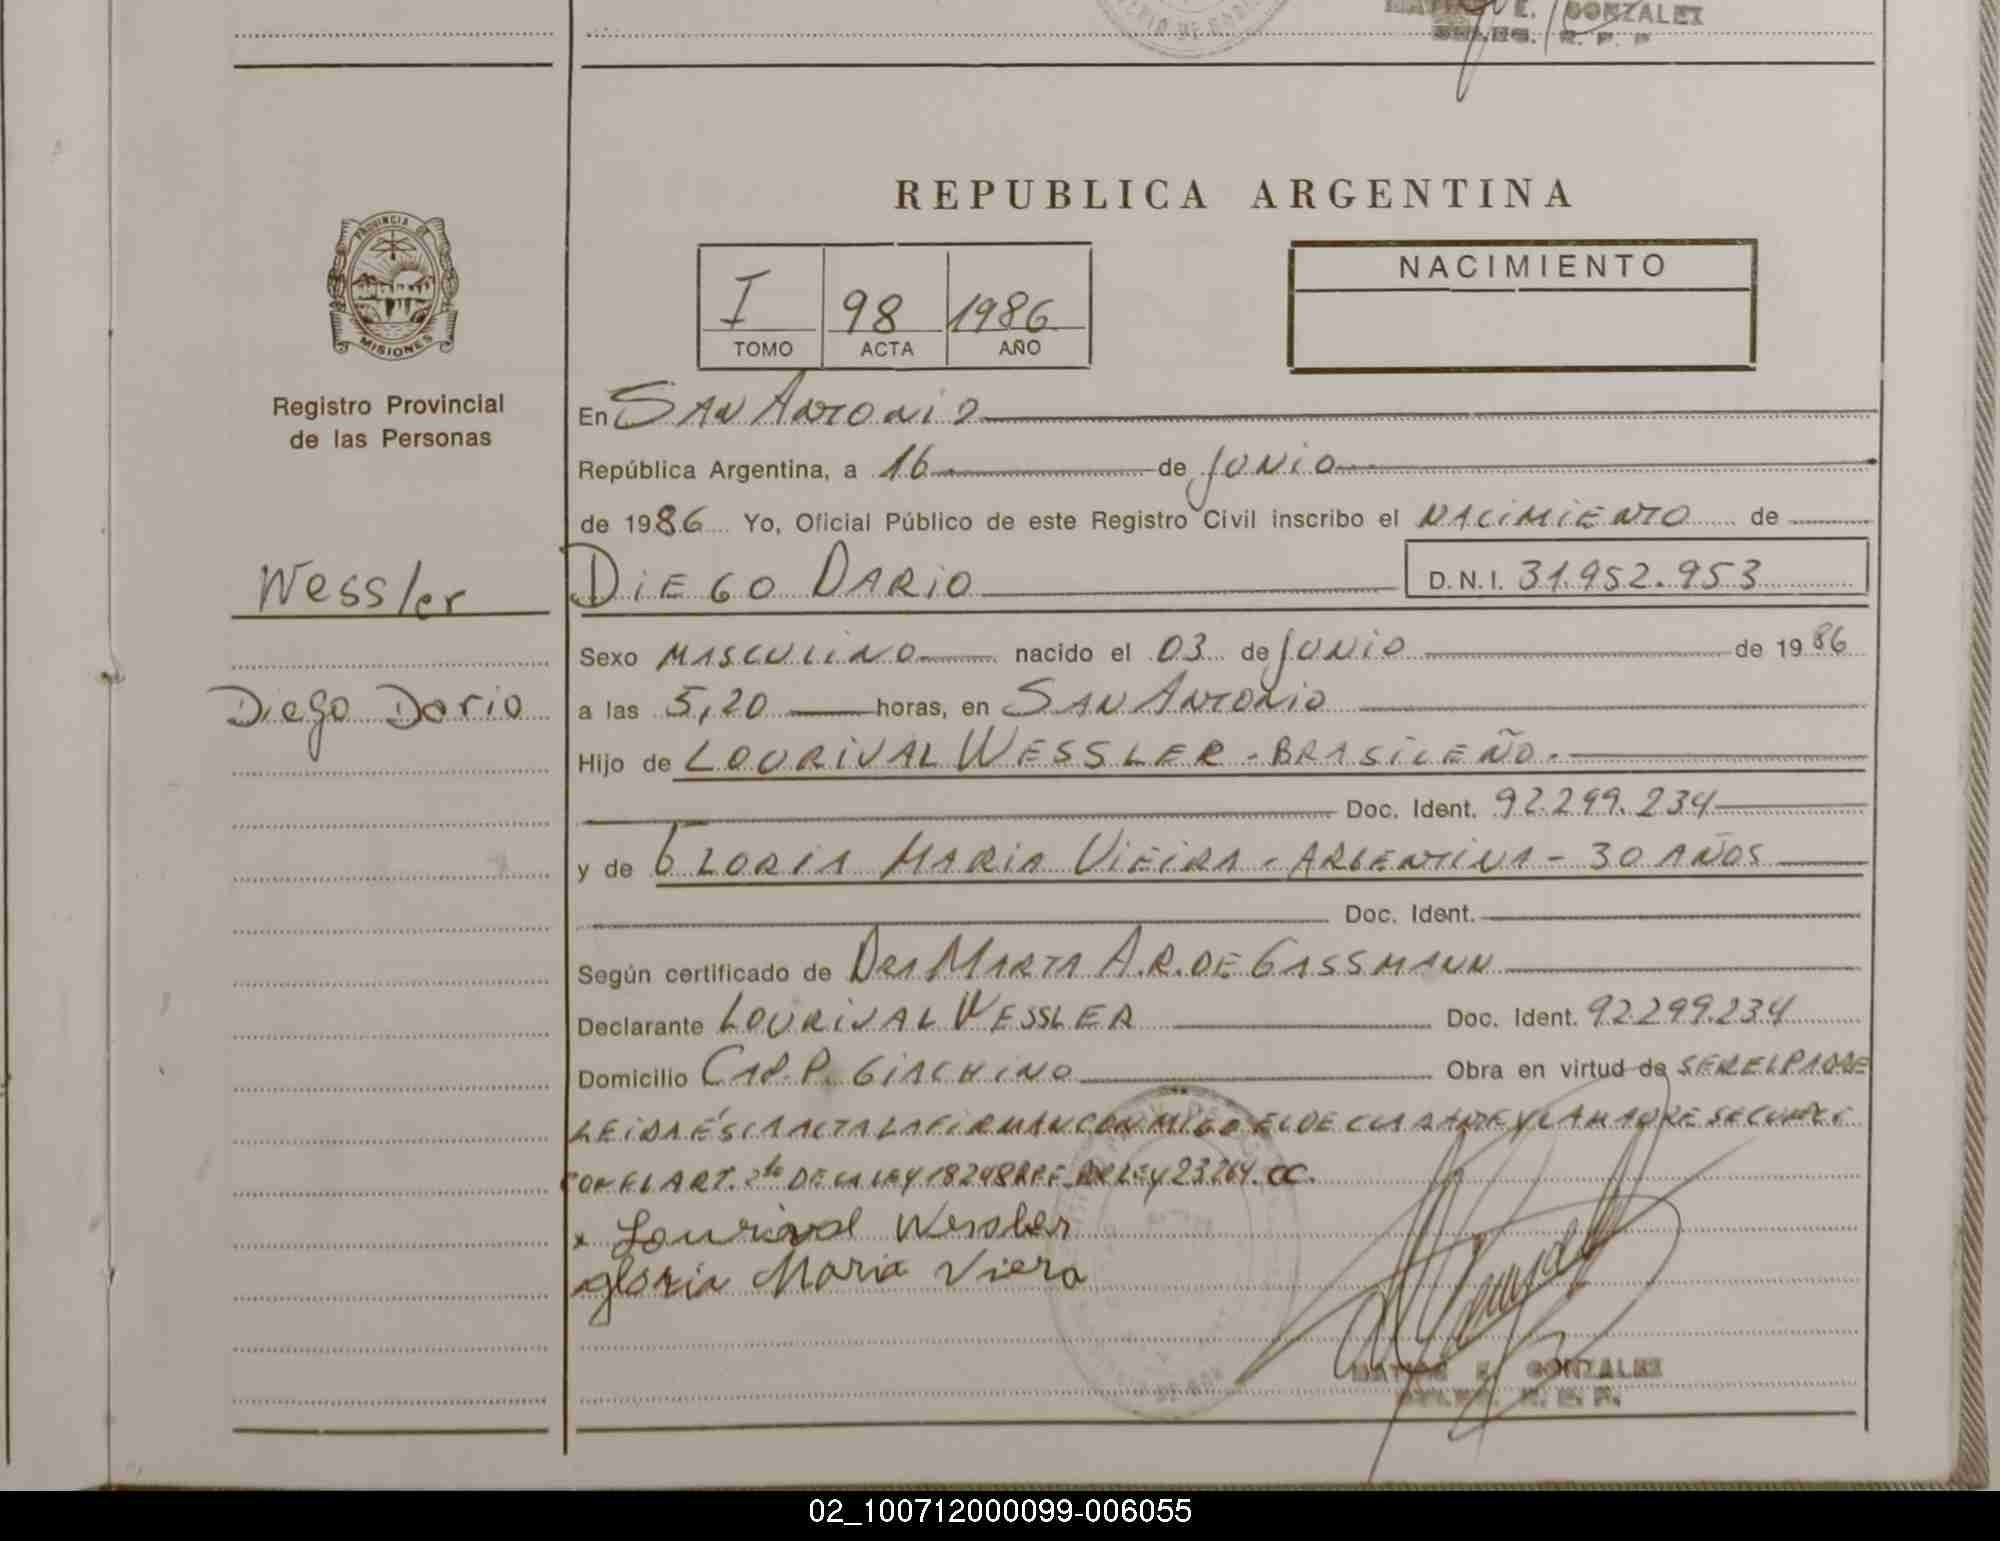 E. GONZALEZ
R. P. P
REPUBLICA ARGENTINA
PROVINCIA DE
MISIONES
Registro Provincial
de las Personas
I 98 1986
TOMO ACTA AÑO
NACIMIENTO
En SAN ANTONIO
República Argentina, a 16 de JUNIO
de 1986 Yo, Oficial Público de este Registro Civil inscribo el NACIMIENTO de
Wessler
DIEGO DARIO D.N.I. 31.952.953
Sexo MASCULINO nacido el 03 de JUNIO de 1986
Diego Dario
a las 5,20 horas, en SAN ANTONIO
Hijo de LOURIVAL WESSLER - BRASILEÑO.-
Doc. Ident. 92.299.234
y de GLORIA MARIA VIEIRA - ARGENTINA - 30 AÑOS
Doc. Ident.
Según certificado de DRA MARTA A.R. DE GASSMANN
Declarante LOURIVAL WESSLER Doc. Ident. 92.299.234
Domicilio CAP. P. GIACHINO Obra en virtud de SER EL PADRE
LEIDA ÉSTA ACTA LA FIRMAN CONMIGO EL DECLARANTE Y LA MADRE SE CUMPLE
CON EL ART. 2do DE LA LEY 18248 REF. POR LEY 23264. CC.
x Lourival Wessler
gloria Maria Viera
E. GONZALEZ
R. P. P.
02_100712000099-006055